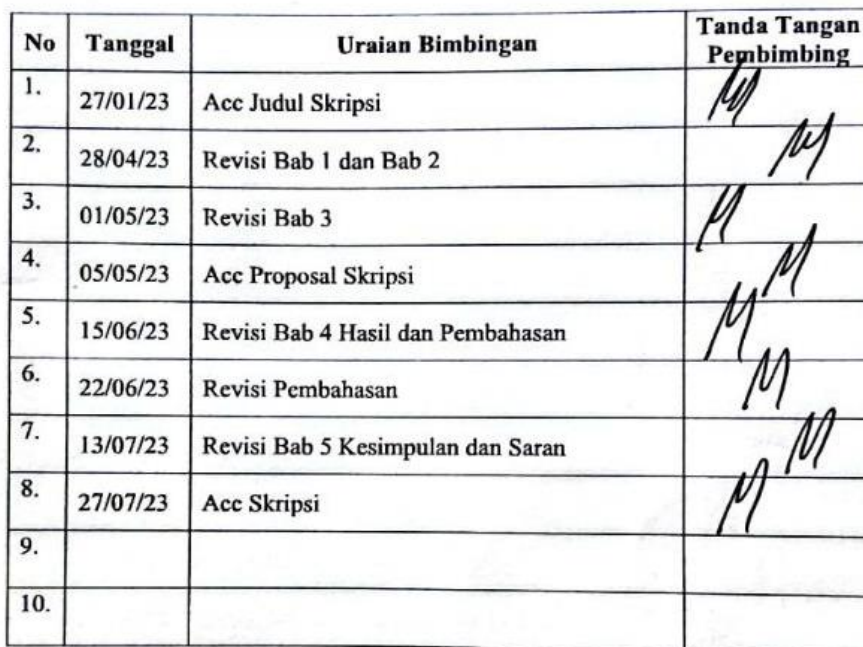 No Tanggal Uraian Bimbingan Tanda Tangan Pembimbing
1. 27/01/23 Acc Judul Skripsi
2. 28/04/23 Revisi Bab 1 dan Bab 2
3. 01/05/23 Revisi Bab 3
4. 05/05/23 Acc Proposal Skripsi
5. 15/06/23 Revisi Bab 4 Hasil dan Pembahasan
6. 22/06/23 Revisi Pembahasan
7. 13/07/23 Revisi Bab 5 Kesimpulan dan Saran
8. 27/07/23 Acc Skripsi
9.
10.